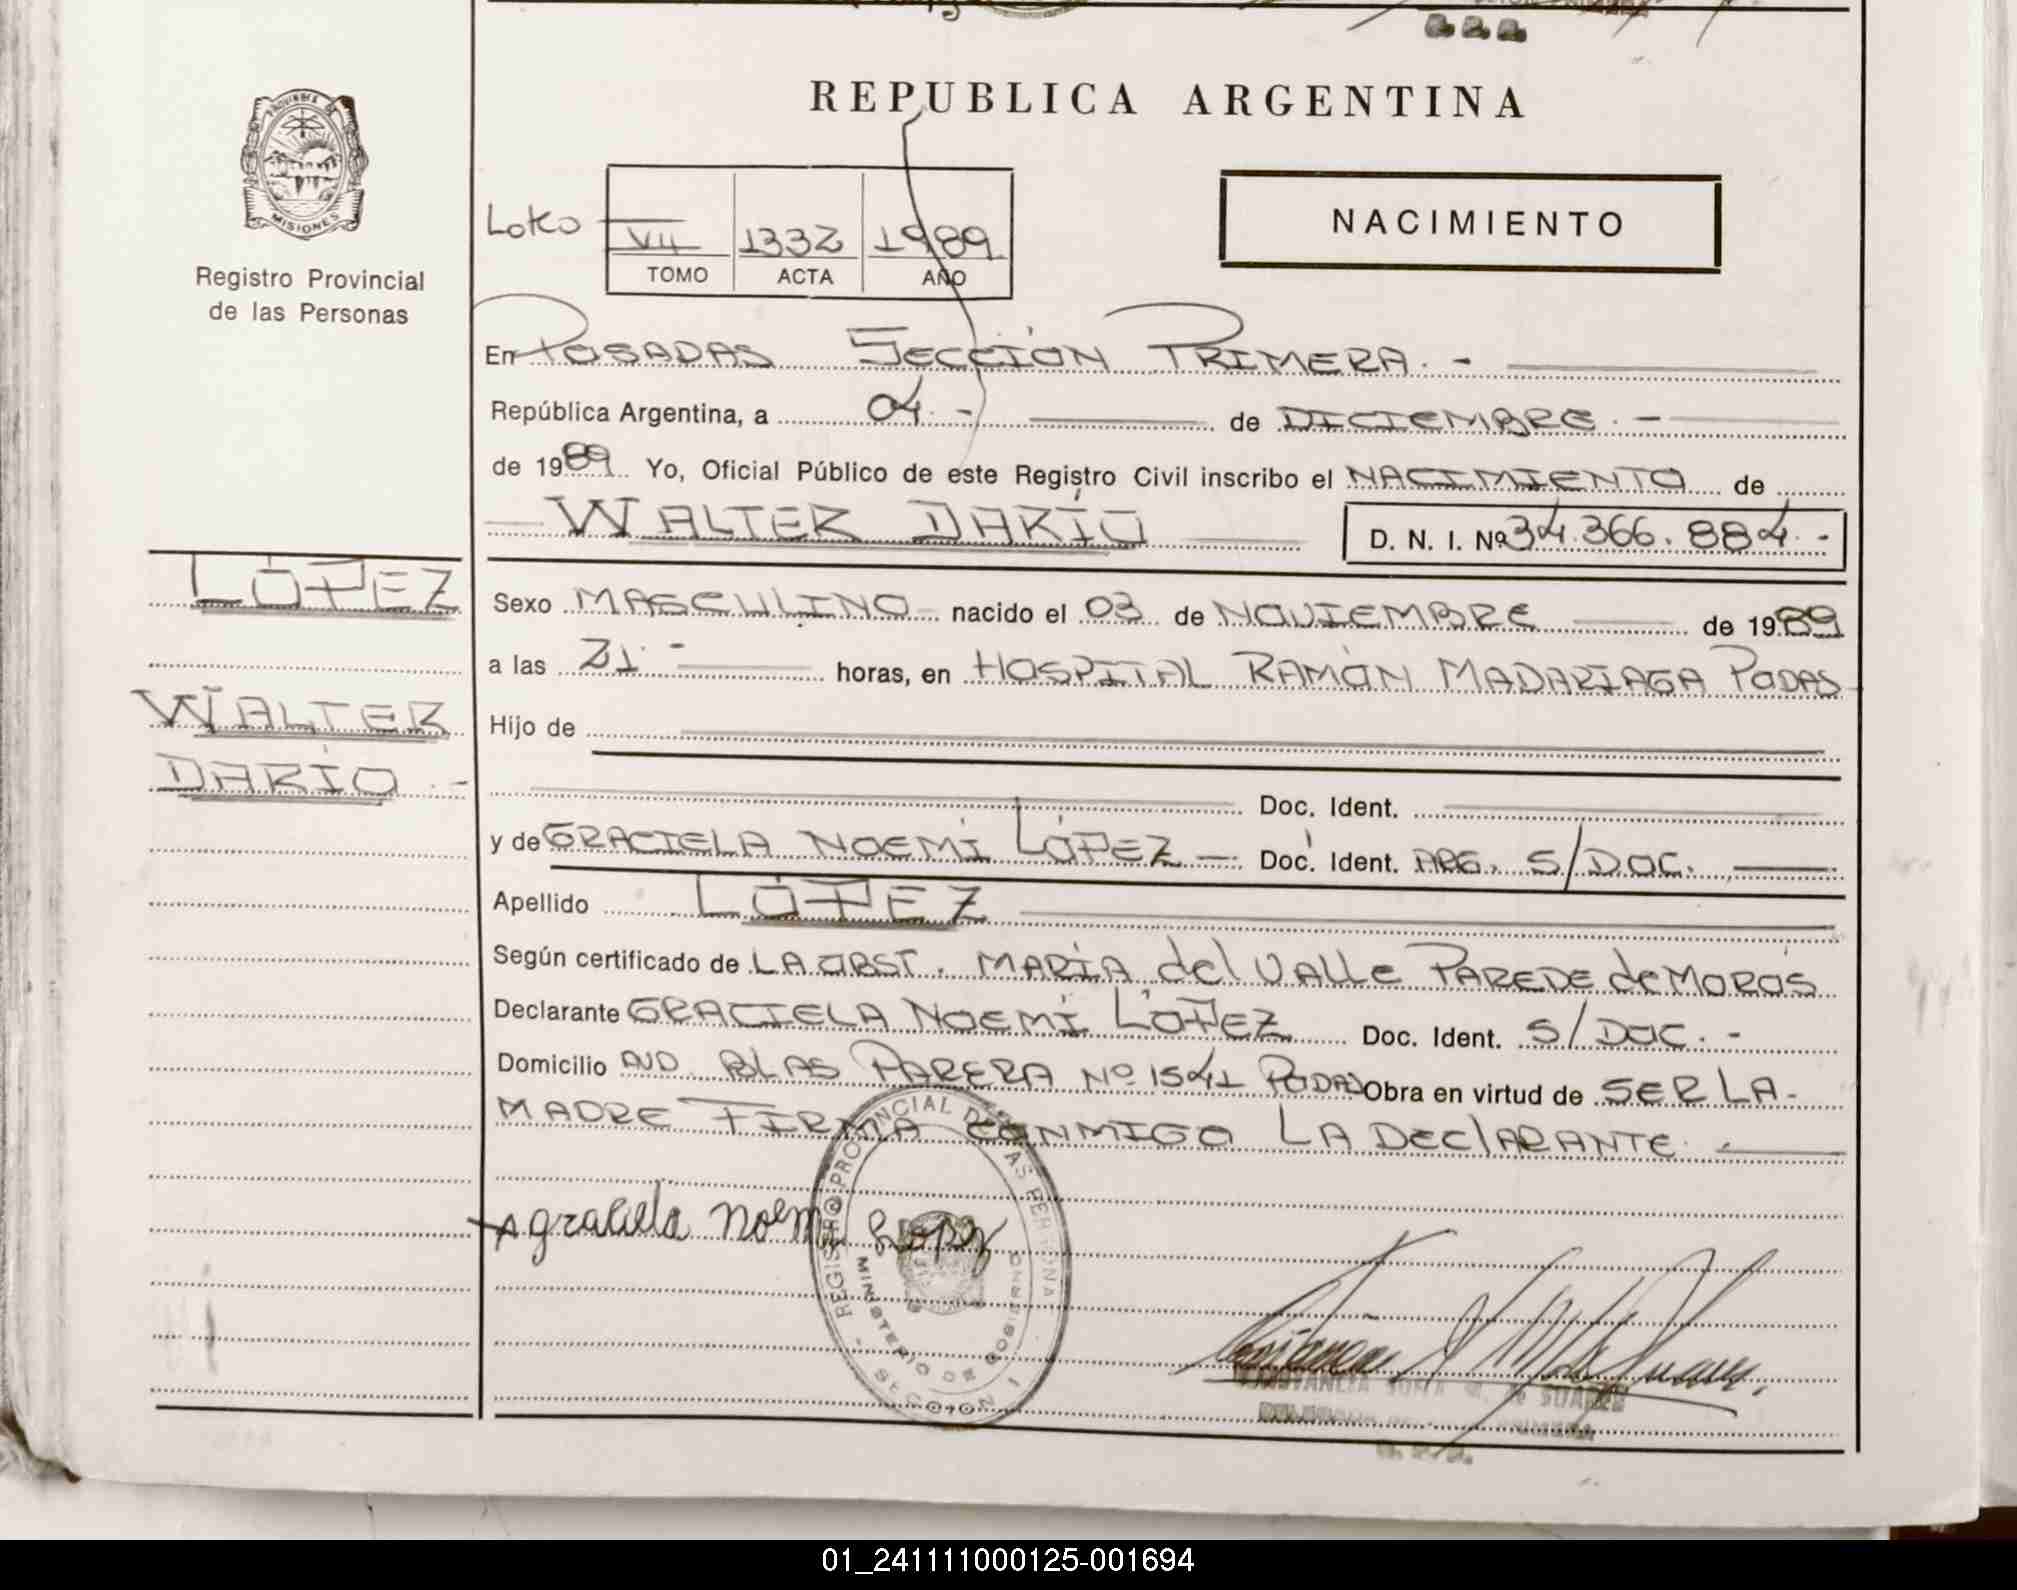 REPUBLICA ARGENTINA
PROVINCIA DE
MISIONES
Registro Provincial
de las Personas
NACIMIENTO
VII 1332 1989
TOMO ACTA AÑO
En POSADAS SECCIÓN PRIMERA.-
República Argentina, a 04.- de DICIEMBRE.-
de 1989 Yo, Oficial Público de este Registro Civil inscribo el NACIMIENTO de
WALTER DARÍO D. N. I. Nº 34.366.884.-
LÓPEZ
WALTER
DARÍO.-
Sexo MASCULINO nacido el 03 de NOVIEMBRE de 1989
a las 21.- horas, en HOSPITAL RAMÓN MADARIAGA PODAS
Hijo de
Doc. Ident.
y de GRACIELA NOEMÍ LÓPEZ Doc. Ident. ARG. S/DOC.
Apellido LÓPEZ
Según certificado de LA OBST. MARÍA del VALLE PAREDE de MOROS
Declarante GRACIELA NOEMÍ LÓPEZ Doc. Ident. S/DOC.-
Domicilio AVD. BLAS PARERA Nº 1541 PODAS Obra en virtud de SER LA
MADRE FIRMA CONMIGO LA DEClARANTE.
graciela noemi Lopez
REGISTRO PROVINCIAL DE LAS PERSONAS
MINISTERIO DE GOBIERNO
SECCION 1
01_241111000125-001694